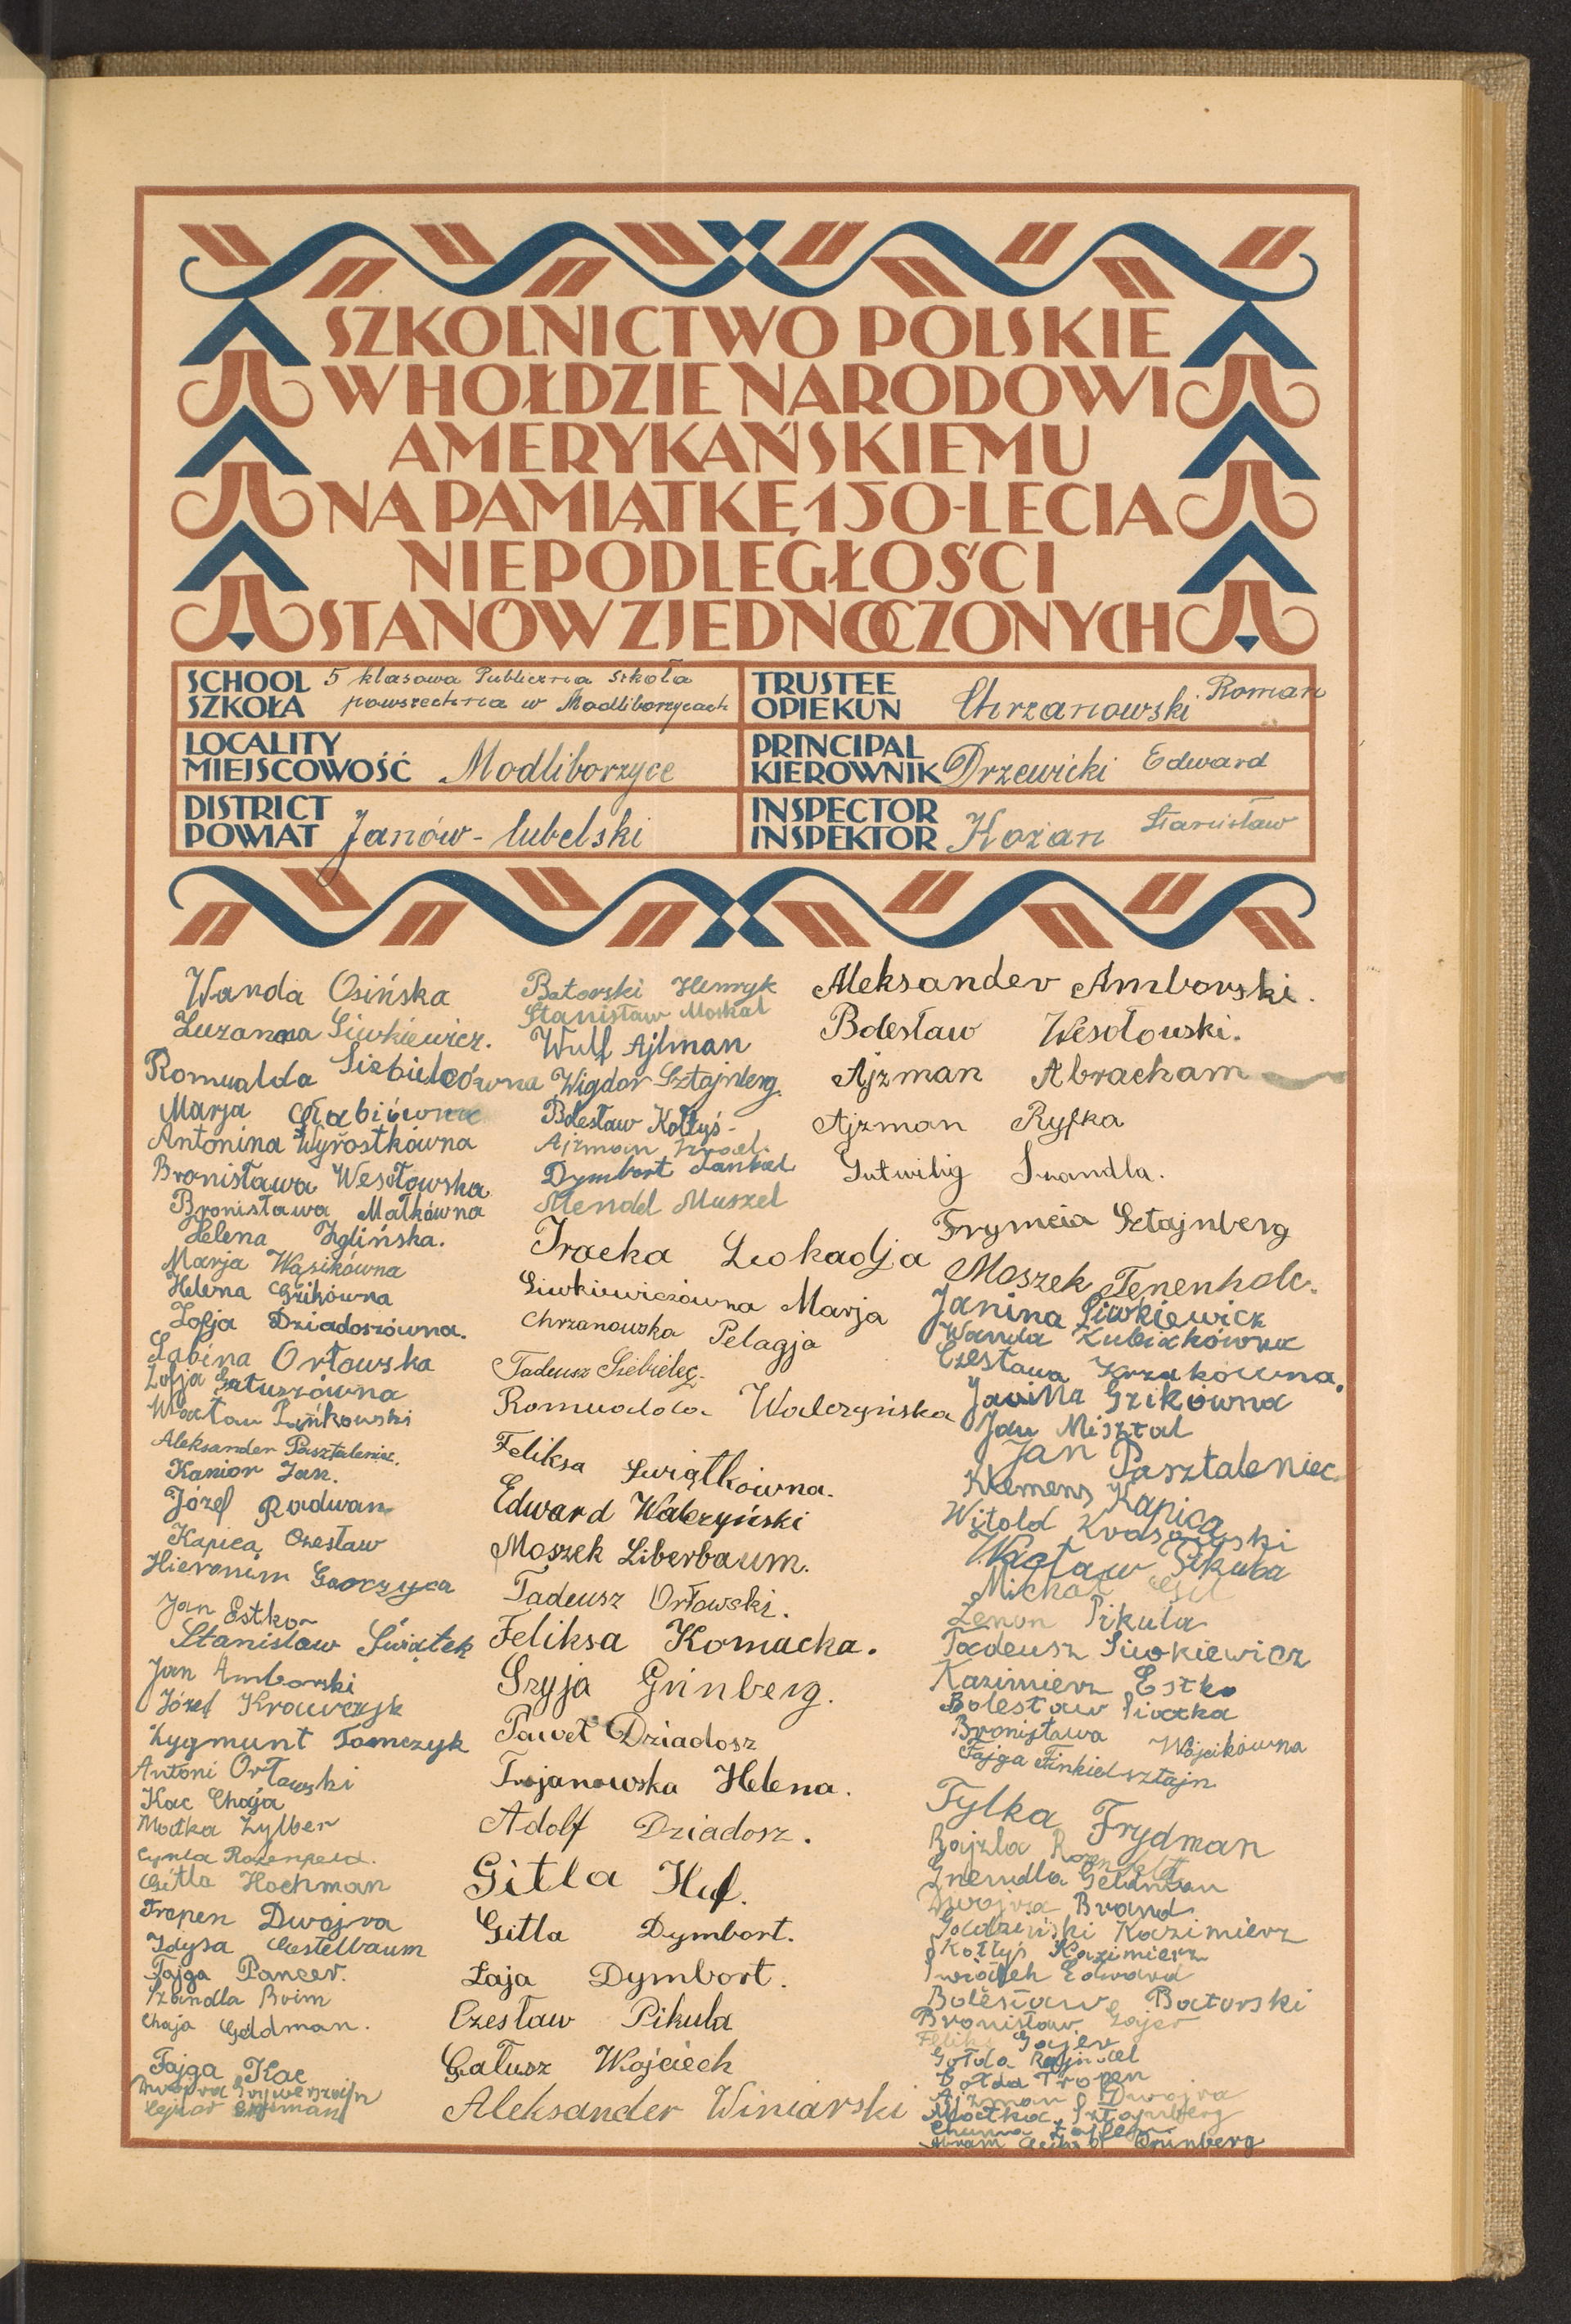 SZKOLNICTWO POLSKIE
W HOŁDZIE NARODOWI
AMERYKAŃSKIEMU
NA PAMIĄTKĘ 150-LECIA
NIEPODLEGŁOŚCI
STANÓW ZJEDNOCZONYCH
SCHOOL 5 klasowa Publiczna Szkoła
SZKOŁA powszechna w Modliborzycach
TRUSTEE
OPIEKUN Chrzanowski Roman
LOCALITY
MIEJSCOWOŚĆ Modliborzyce
PRINCIPAL
KIEROWNIK Drzewicki Edward
DISTRICT
POWIAT Janów-lubelski
INSPECTOR
INSPEKTOR Kozan Stanisław
Wanda Osińska
Zuzanna Siwkiewicz.
Romualda Siebielcówna
Marja
Antonina Wyrostkówna
Bronisława Wesołowska
Bronisława Małkówna
Helena Zglińska.
Marja Wąsikówna
Helena Gzikówna
Zofja Dziadoszówna.
Sabina Orłowska
Zofja Gałuszówna
Wacław
Aleksander Pasztaleniec.
Kanior Jan.
Józef Radwan
Kapica Czesław
Hieronim Gorczyca
Jan Estko
Stanisław Świątek
Jan Amborski
Józef Krawczyk
Zygmunt Tomczyk
Antoni Orłowski
Kac Chaja
Motka Zylber
Cyrla Rozenpeld.
Gitla Hochman
Tropen Dwojra
Idysa Gestelbaum
Fajga Pancer.
Szandla Boim
Chaja Goldman.
Fajga Kac
Batorski Henryk
Stanisław Moskal
Wulf Ajlman
Wigdor Sztajnberg.
Bolesław Kołtyś
Ajzman Izrael.
Dymbort Jankiel
Mendel Muszel
Iracka Leokadja
Siwkiewiczówna Marja
Chrzanowska Pelagja
Tadeusz Siebielec.
Romualda Walczyńska
Feliksa Świątkówna.
Edward Walczyński
Moszek Liberbaum.
Tadeusz Orłowski.
Feliksa Komacka.
Szyja Grinberg.
Paweł Dziadosz
Trojanowska Helena.
Adolf Dziadosz.
Gitla Huf.
Gitla Dymbort.
Łaja Dymbort.
Czesław Pikula
Gałusz Wojciech
Aleksander Winiarski
Aleksander Amborski.
Bolesław Wesołowski.
Ajzman Abracham
Ajzman Ryfka
Gutwilig Szandla.
Frymcia Sztajnberg
Moszek Tenenholc.
Janina Siwkiewicz
Wanda Kubiakówna
Czesława Krzakówna.
Janina Gzikówna
Jan Misztal
Jan Pasztaleniec
Klemens Kapica
Witold Krasowski
Wacław Pikula
Michał Gil
Zenon Pikula
Tadeusz Siwkiewicz
Kazimierz Estko
Bolesław Siostka
Bronisława Wójcikówna
Fajga Finkielsztajn
Tylka Frydman
Bajzla Rozenfeld
Gnendla Geldman
Dwojra Brand
Godziński Kazimierz
Kołtyś Kazimierz
Świątek Edward
Bolesław Batorski
Bronisław Gajer
Feliks Gajer
Gołda Rajndel
Gołda Tropen
Ajzman Dwojra
Motka Sztajnberg
Grinberg